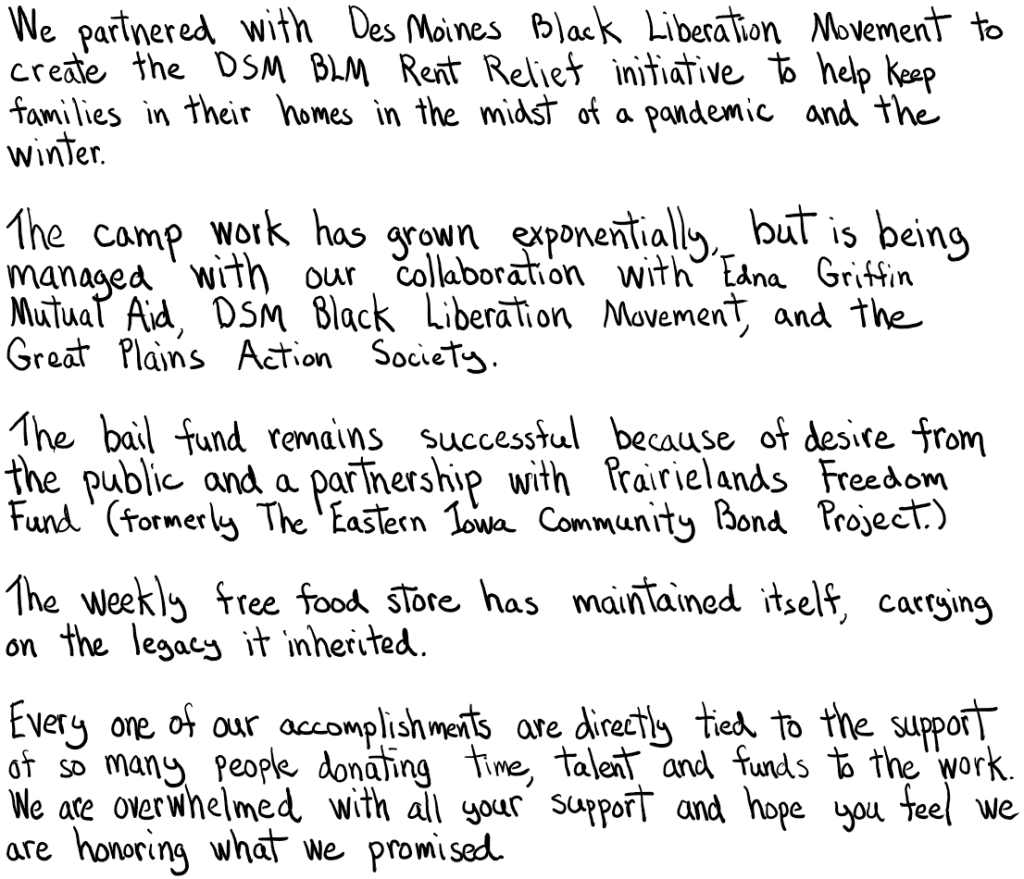 We partnered with Des Moines Black Liberation Movement to
create the DSM BLM Rent Relief initiative to help keep
families in their homes in the midst of a pandemic and the
winter.
The camp work has grown exponentially, but is being
managed with our collaboration with Edna Griffin
Mutual Aid, DSM Black Liberation Movement, and the
Great Plains Action Society.
The bail fund remains successful because of desire from
the public and a partnership with Prairielands Freedom
Fund (formerly The Eastern Iowa Community Bond Project.)
The weekly free food store has maintained itself, carrying
on the legacy it inherited.
Every one of our accomplishments are directly tied to the support
of so many people donating time, talent and funds to the work.
We are overwhelmed with all your support and hope you feel we
are honoring what we promised.